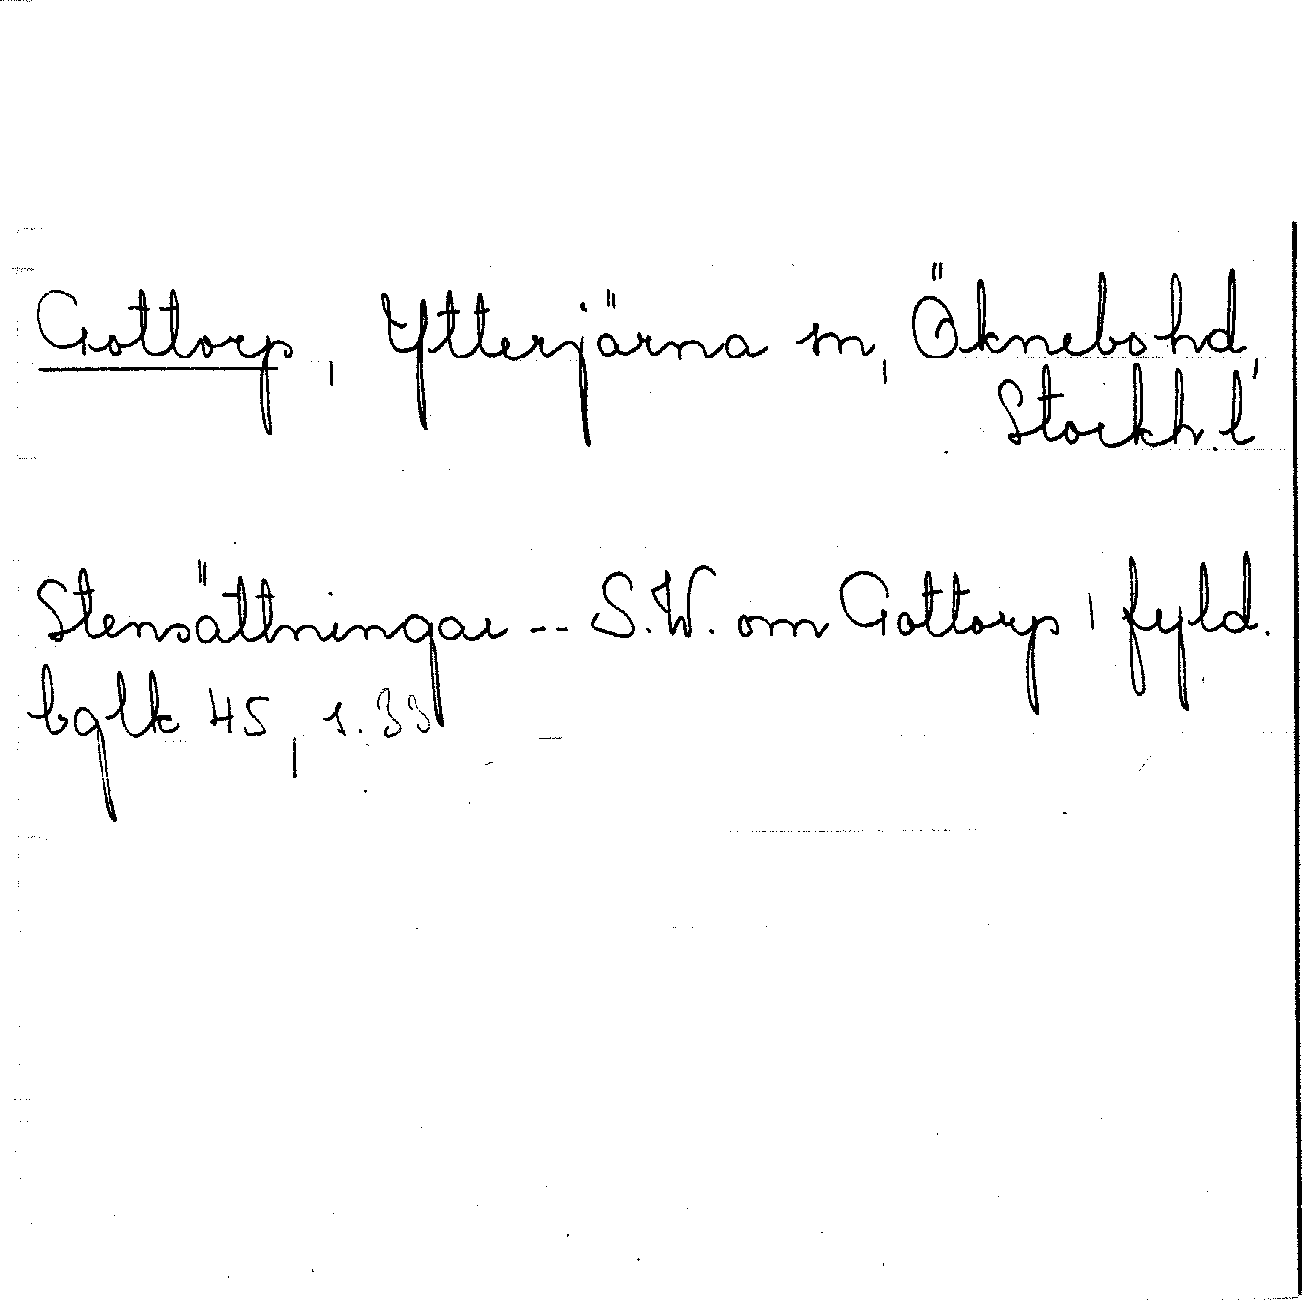 Gottorp, Ytterjärna sn, Öknebo hd,
Stockh.l
Stensättningar -- S.W. om Gottorp, fyld.
bglk 45, s.33